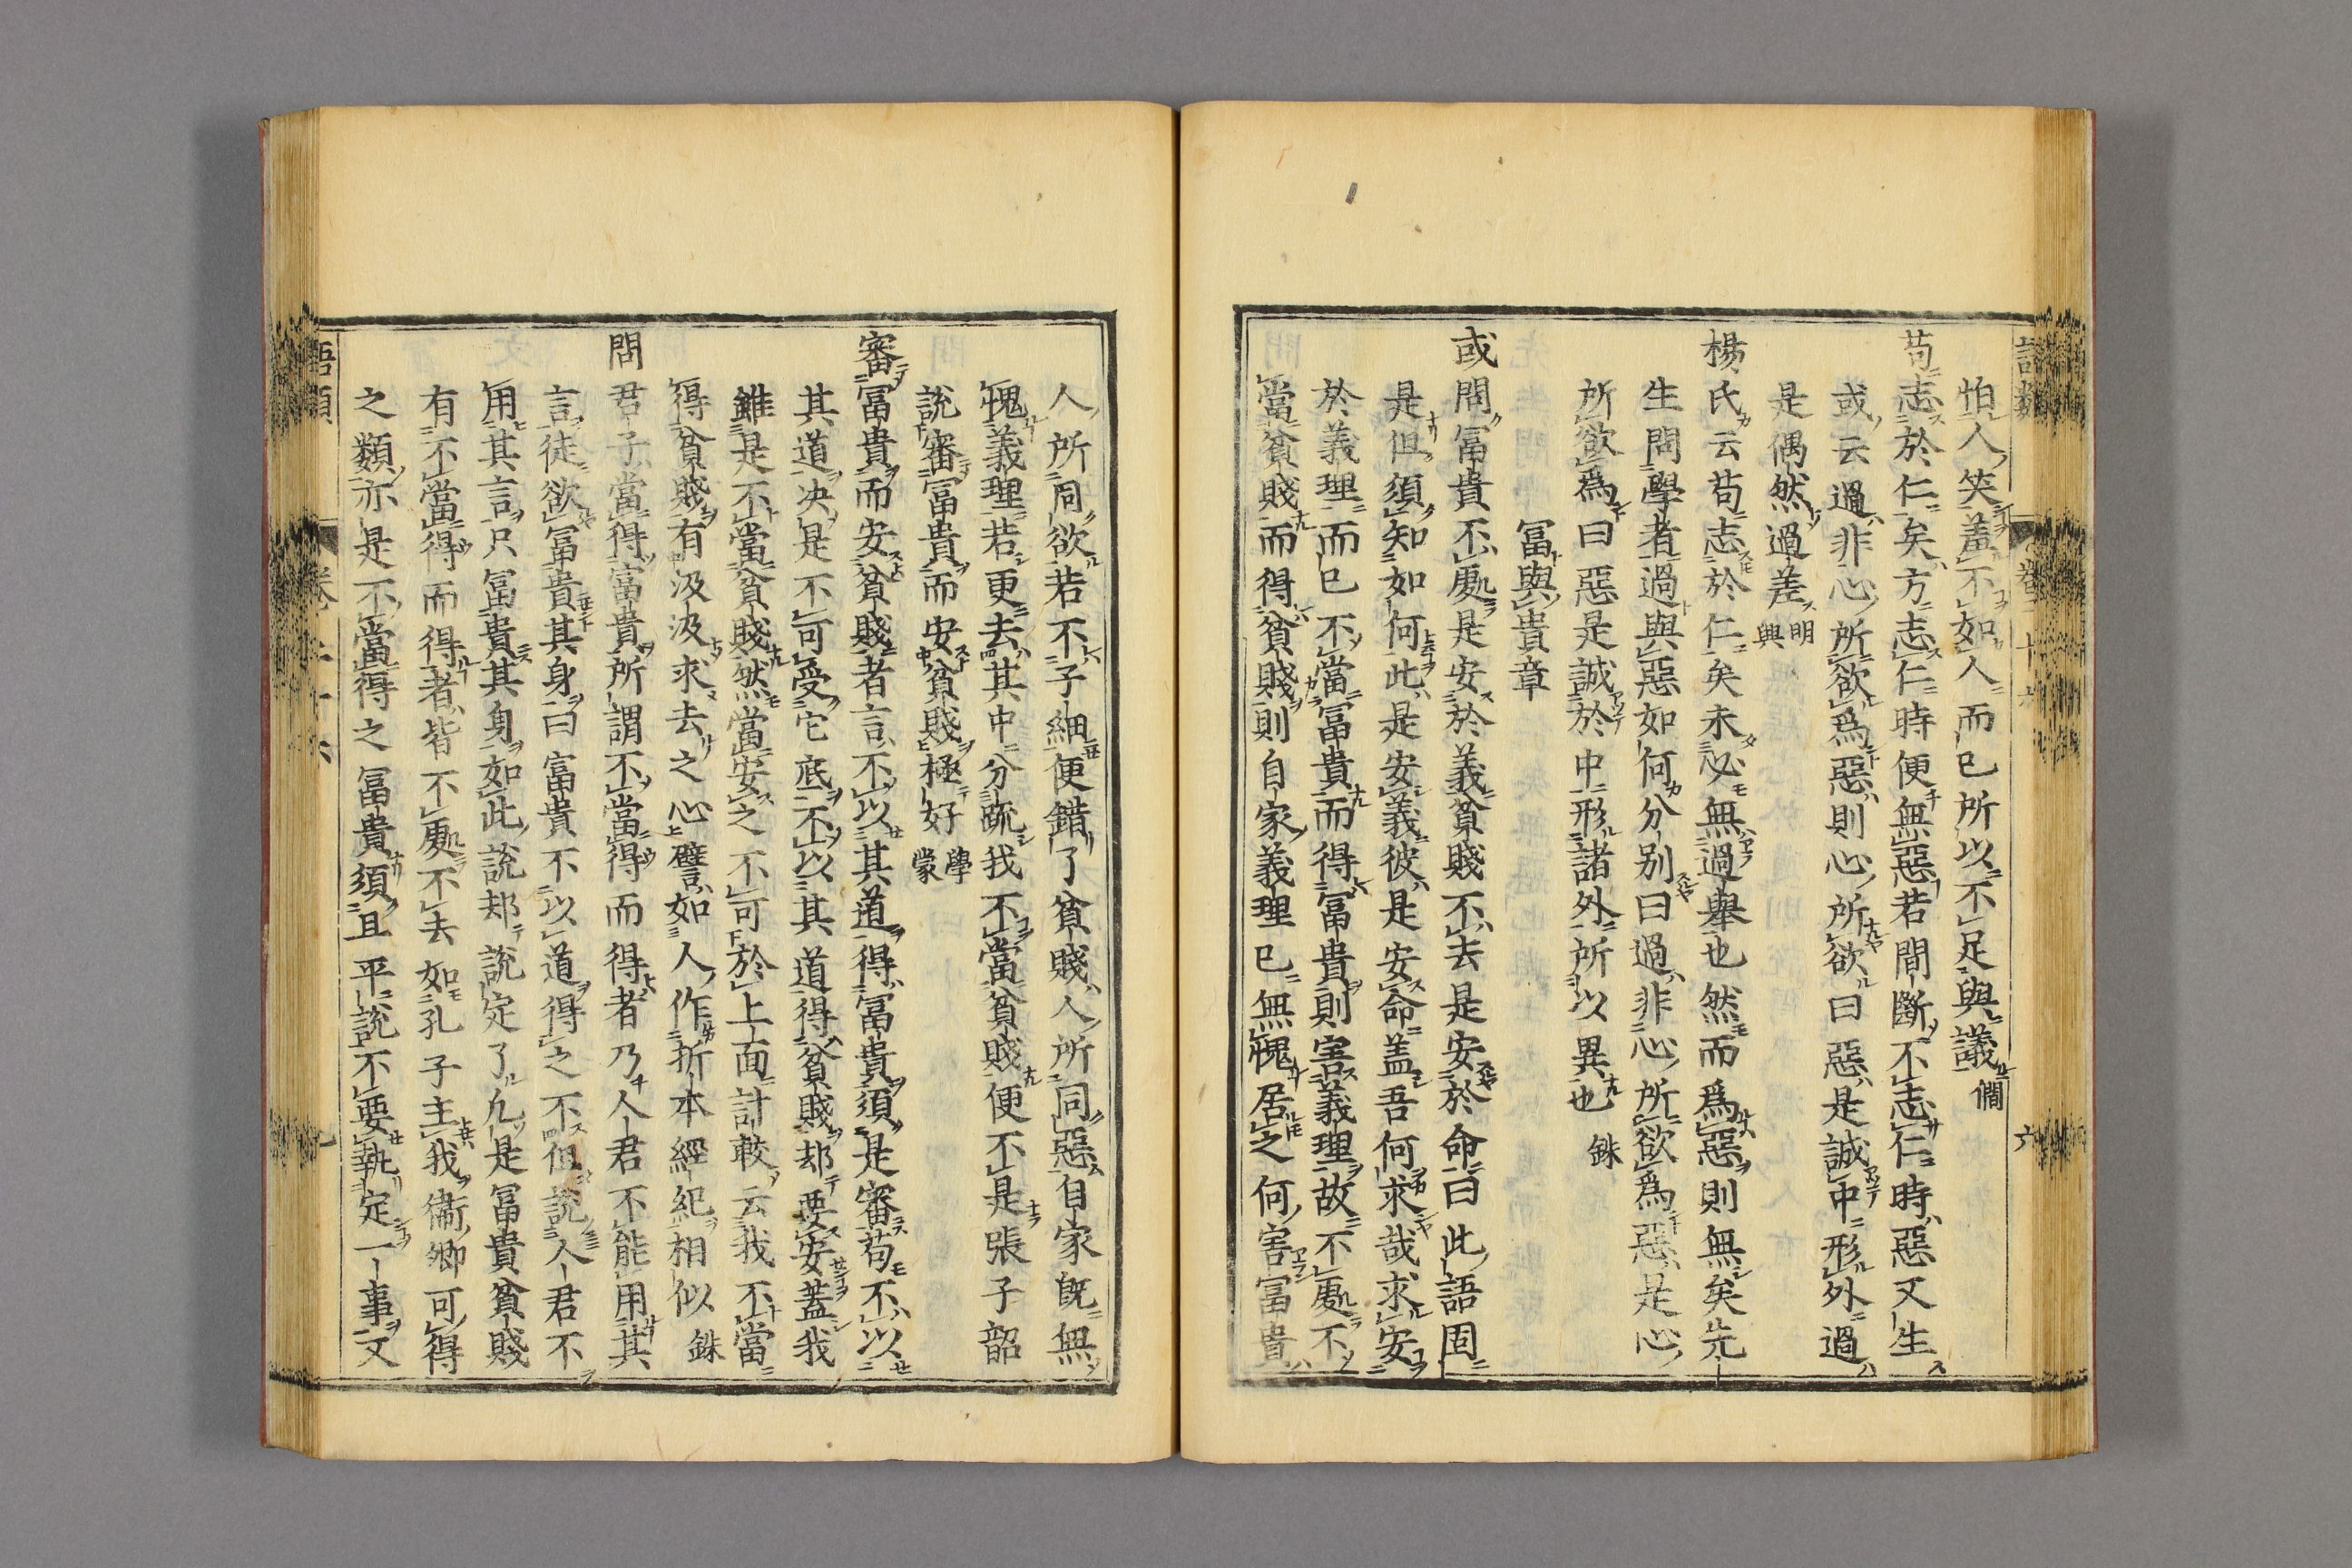 怕人笑羞不如人而已所以不足與議 僩
苟志於仁矣方志仁時便無惡若間斷不志仁時惡又生
或云過非心所欲爲惡則心所欲曰惡是誠中形外過
是偶然過差 明興
楊氏云苟志於仁矣未必無過舉也然而爲惡則無矣先
生問學者過與惡如何分别曰過非心所欲爲惡是心
所欲爲曰惡是誠於中形諸外所以異也 銖
冨與貴章
或問冨貴不處是安於義貧賤不去是安於命曰此語固
是但須知如何此是安義彼是安命盖吾何求哉求安
於義理而已不當冨貴而得冨貴則害義理故不處不
當貧賤而得貧賤則自家義理已無愧居之何害富貴
人所同欲若不子細便錯了貧賤人所同惡自家旣無
愧義理若更去其中分疏我不當貧賤便不是張子韶
說審冨貴而安貧賤極好 學蒙
審冨貴而安貧賤者言不以其道得冨貴須是審苟不以
其道决是不可受它底不以其道得貧賤却要安蓋我
雖是不當貧賤然當安之不可於上面計較云我不當
得貧賤有汲汲求去之心譬如人作折本經紀相似 銖
問君子當得富貴所謂不當得而得者乃人君不能用其
言徒欲冨貴其身曰富貴不以道得之不但說人君不
用其言只冨貴其身如此說却說定了凡是冨貴貧賤
有不當得而得者皆不處不去如孔子主我衞卿可得
之類亦是不當得之冨貴須且平說不要執定一事文
語類
卷二十六
六